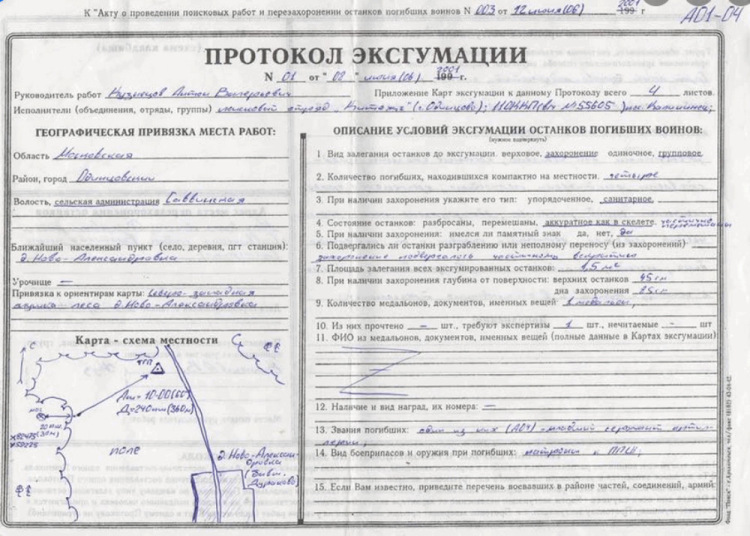 К "Акту о проведении поисковых работ и перезахоронении останков погибших воинов N 003 от 12 июня (06) 2001 199 г
А01-04
ПРОТОКОЛ ЭКСГУМАЦИИ
N 01 от "02" июня (06) 2001 199 г.
Руководитель работ Кузнецов Антон Валерьевич
Приложение Карт эксгумации к данному Протоколу всего 4 листов.
Исполнители (объединения, отряды, группы) отряд "Китежъ" (г. Одинцово); в/ч №55605
ГЕОГРАФИЧЕСКАЯ ПРИВЯЗКА МЕСТА РАБОТ:
Область Московская
Район, город Одинцовский
Волость, сельская администрация Саввинская
Ближайший населенный пункт (село, деревня, пгт станция):
д. Ново-Александровка
Урочище —
Привязка к ориентирам карты: Северо-западная
леса д. Ново-Александровка
Карта - схема местности
С
Ам= 10-00 (60)
Д=240 (360м)
поле
д. Ново-Алексан-
дровка
ОПИСАНИЕ УСЛОВИЙ ЭКСГУМАЦИИ ОСТАНКОВ ПОГИБШИХ ВОИНОВ:
(нужное подчеркнуть)
1. Вид залегания останков до эксгумации: верховое, захоронение одиночное, групповое.
2. Количество погибших, находившихся компактно на местности. четверо
3. При наличии захоронения укажите его тип: упорядоченное, санитарное.
4. Состояние останков: разбросаны, перемешаны, аккуратное как в скелете. частично перемешаны
5. При наличии захоронения: имелся ли памятный знак да, нет, да
6. Подвергались ли останки разграблению или неполному переносу (из захоронений)
захоронение подверглось частичному вскрытию
7. Площадь залегания всех эксгумированных останков: 1,5 м²
8. При наличии захоронения глубина от поверхности: верхних останков 45 см
дна захоронения 85 см
9. Количество медальонов, документов, именных вещей 1 медальон;
10. Из них прочтено — шт., требуют экспертизы 1 шт., нечитаемые - шт
11. ФИО из медальонов, документов, именных вещей (полные данные в Картах эксгумации)
12. Наличие и вид наград, их номера: —
13. Звания погибших: один из них (А04) - младший сержант артил-
лерии;
14. Вид боеприпасов и оружия при погибших: патроны к
15. Если Вам известно, приведите перечень воевавших в районе частей, соединений, армий: